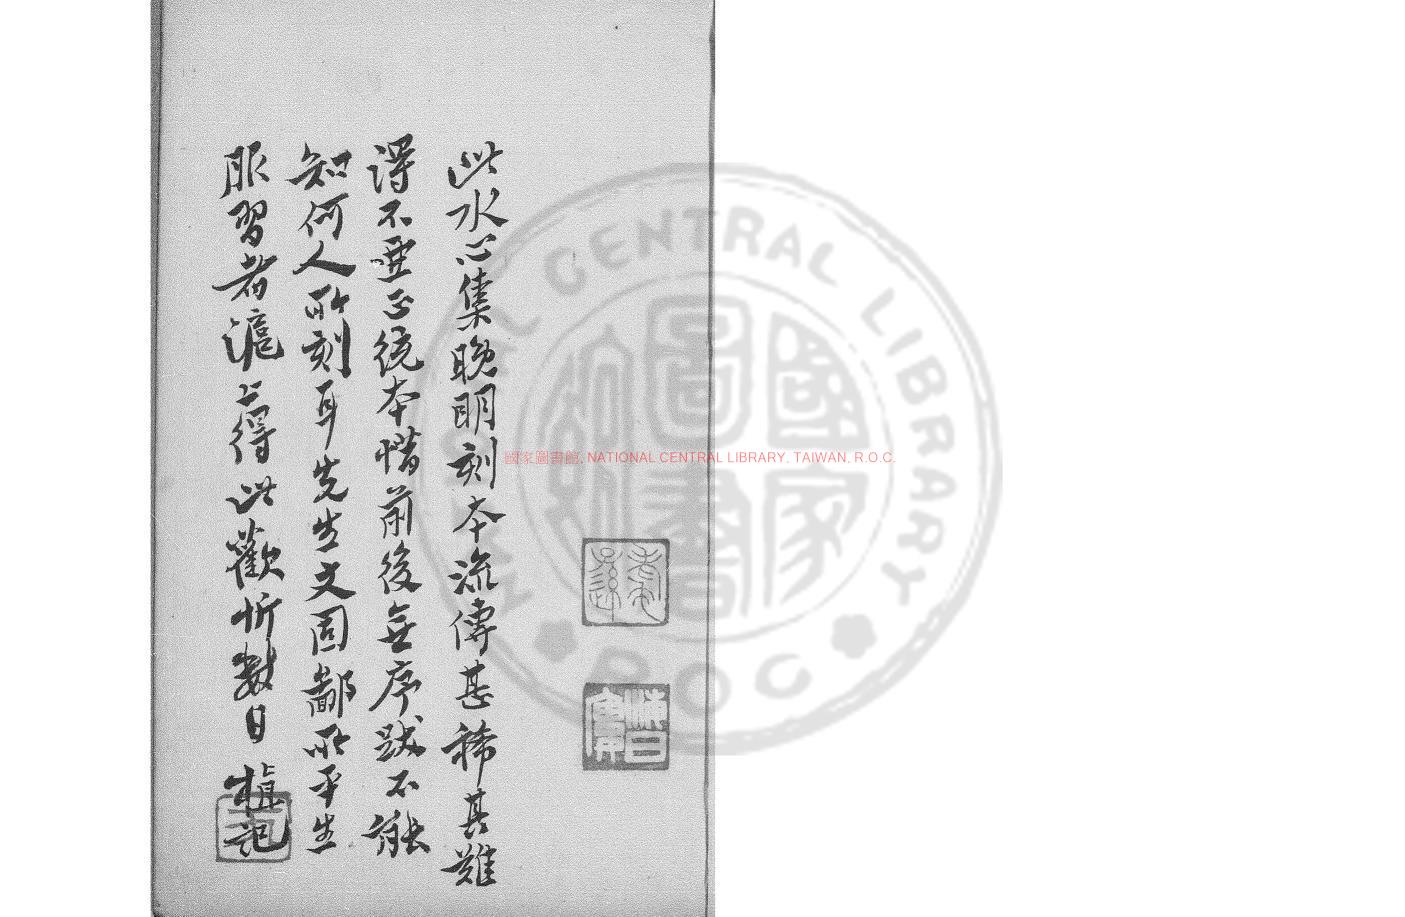 此水心集晚明刻本流傳甚稀其難
得不亞正統本惜前後無序跋不能
知何人所刻耳先生文固鄙所平生
服習者滬上得此歡忻數日 植記
國家圖書館, NATIONAL CENTRAL LIBRARY, TAIWAN, R.O.C.
CENTRAL LIBRARY
ROC
國家圖書